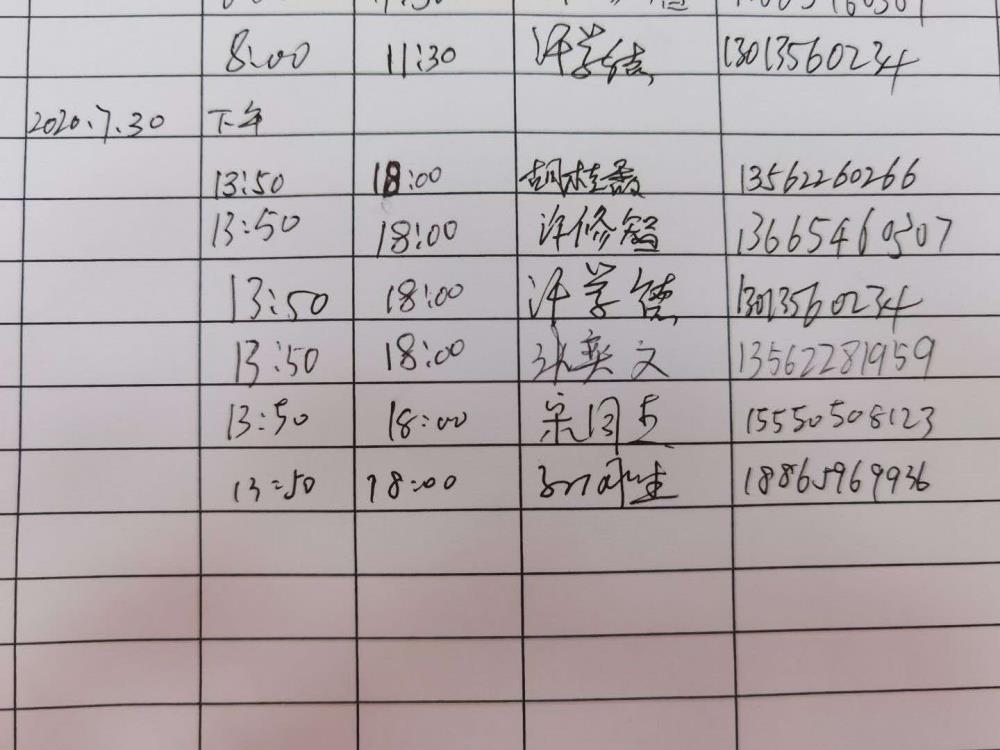 8:00 11:30 许学德 13013560234
2020.7.30 下午
13:50 18:00 胡桂香 13562260266
13:50 18:00 许修 13665460307
13:50 18:00 许学德 13013560234
13:50 18:00 孙奕文 13562281959
13:50 18:00 宋同 15550508123
13:50 18:00 18865969936